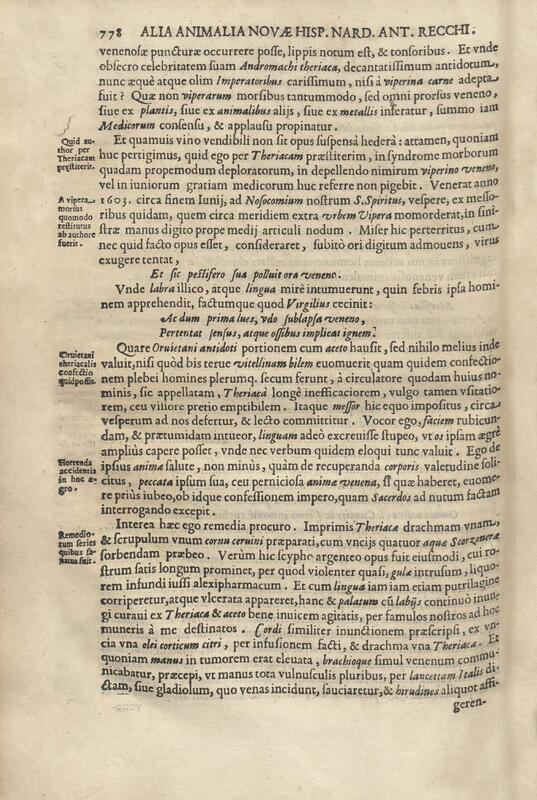 778 ALIA ANIMALIA NOVÆ HISP. NARD. ANT. RECCHI.
venenosæ puncturæ occurrere posse, lippis notum est, & tonsoribus. Et vnde
obsecro celebritatem suam Andromachi theriaca, decantatissimum antidotum,
nunc æquè atque olim Imperatoribus carissimum, nisi à viperina carne adepta
fuit? Quæ non viperarum morsibus tantummodo, sed omni prorsus veneno,
siue ex plantis, siue ex animalibus alijs, siue ex metallis inferatur, summo iam
Medicorum consensu, & applausu propinatur.
Quid au-
thor per
Theriacam
præstiterit.
Et quamuis vino vendibili non sit opus suspensâ hederâ: attamen, quoniam
huc pertigimus, quid ego per Theriacam præstiterim, in syndrome morborum
quadam propemodum deploratorum, in depellendo nimirum viperino veneno,
vel in iuniorum gratiam medicorum huc referre non pigebit. Venerat anno
A vipera
morsus
quomodo
restitutus
ab authore
fuerit.
1603. circa finem Iunij, ad Nosocomium nostrum S. Spiritus, vespere, ex messo-
ribus quidam, quem circa meridiem extra vrbem Vipera momorderat, in sini-
stræ manus digito prope medij articuli nodum. Miser hic perterritus, cum
nec quid facto opus esset, consideraret, subitò ori digitum admouens, virus
exugere tentat,
Et sic pestifero sua polluit ora veneno.
Vnde labra illico, atque lingua mirè intumuerunt, quin febris ipsa homi-
nem apprehendit, factumque quod Virgilius cecinit:
Ac dum prima lues, vdo sublapsa veneno,
Pertentat sensus, atque ossibus implicat ignem.
Oruietani
theriacalis
confectio
quid possit.
Quare Oruietani antidoti portionem cum aceto hausit, sed nihilo melius inde
valuit, nisi quòd bis terue vitellinam bilem euomuerit quam quidem confectio-
nem plebei homines plerumq. secum ferunt, à circulatore quodam huius no-
minis, sic appellatam, Theriacâ longè inefficaciorem, vulgo tamen vsitatio-
rem, ceu viliore pretio emptibilem. Itaque messor hic equo impositus, circa
vesperum ad nos defertur, & lecto committitur. Vocor ego, faciem rubicun-
dam, & prætumidam intueor, linguam adeò excreuisse stupeo, vt os ipsam ægrè
amplius capere posset, vnde nec verbum quidem eloqui tunc valuit. Ego de
Horrenda
accidentia
in hoc æ-
gro.
ipsius animæ salute, non minùs, quàm de recuperanda corporis valetudine soli-
citus, peccata ipsum sua, ceu perniciosa animæ venena, si quæ haberet, euome-
re priùs iubeo, ob idque confessionem impero, quam Sacerdos ad nutum factam
interrogando excepit.
Remedio-
rum series
quibus sa-
natus fuit.
Interea hæc ego remedia procuro. Imprimis Theriacæ drachmam vnam,
& scrupulum vnum cornu ceruini præparati, cum vncijs quatuor aquæ Scorzoneræ
sorbendam præbeo. Verùm hic scyphe argenteo opus fuit eiusmodi, cui ro-
strum satis longum prominet, per quod violenter quasi, gulæ intrusum, liquo-
rem infundi iussi alexipharmacum. Et cum lingua iam iam etiam putrilagine
corriperetur, atque vlcerata appareret, hanc & palatum cũ labijs continuò inun-
gi curaui ex Theriaca & aceto bene inuicem agitatis, per famulos nostros ad hoc
muneris à me destinatos. Cordi similiter inunctionem præscripsi, ex vn-
cia vna olei corticum citri, per infusionem facti, & drachma vna Theriacæ. Et
quoniam manus in tumorem erat eleuata, brachioque simul venenum commu-
nicabatur, præcepi, vt manus tota vulnusculis pluribus, per lancettam Italis di-
ctam, siue gladiolum, quo venas incidunt, sauciaretur, & hirudines aliquot affi-
geren-